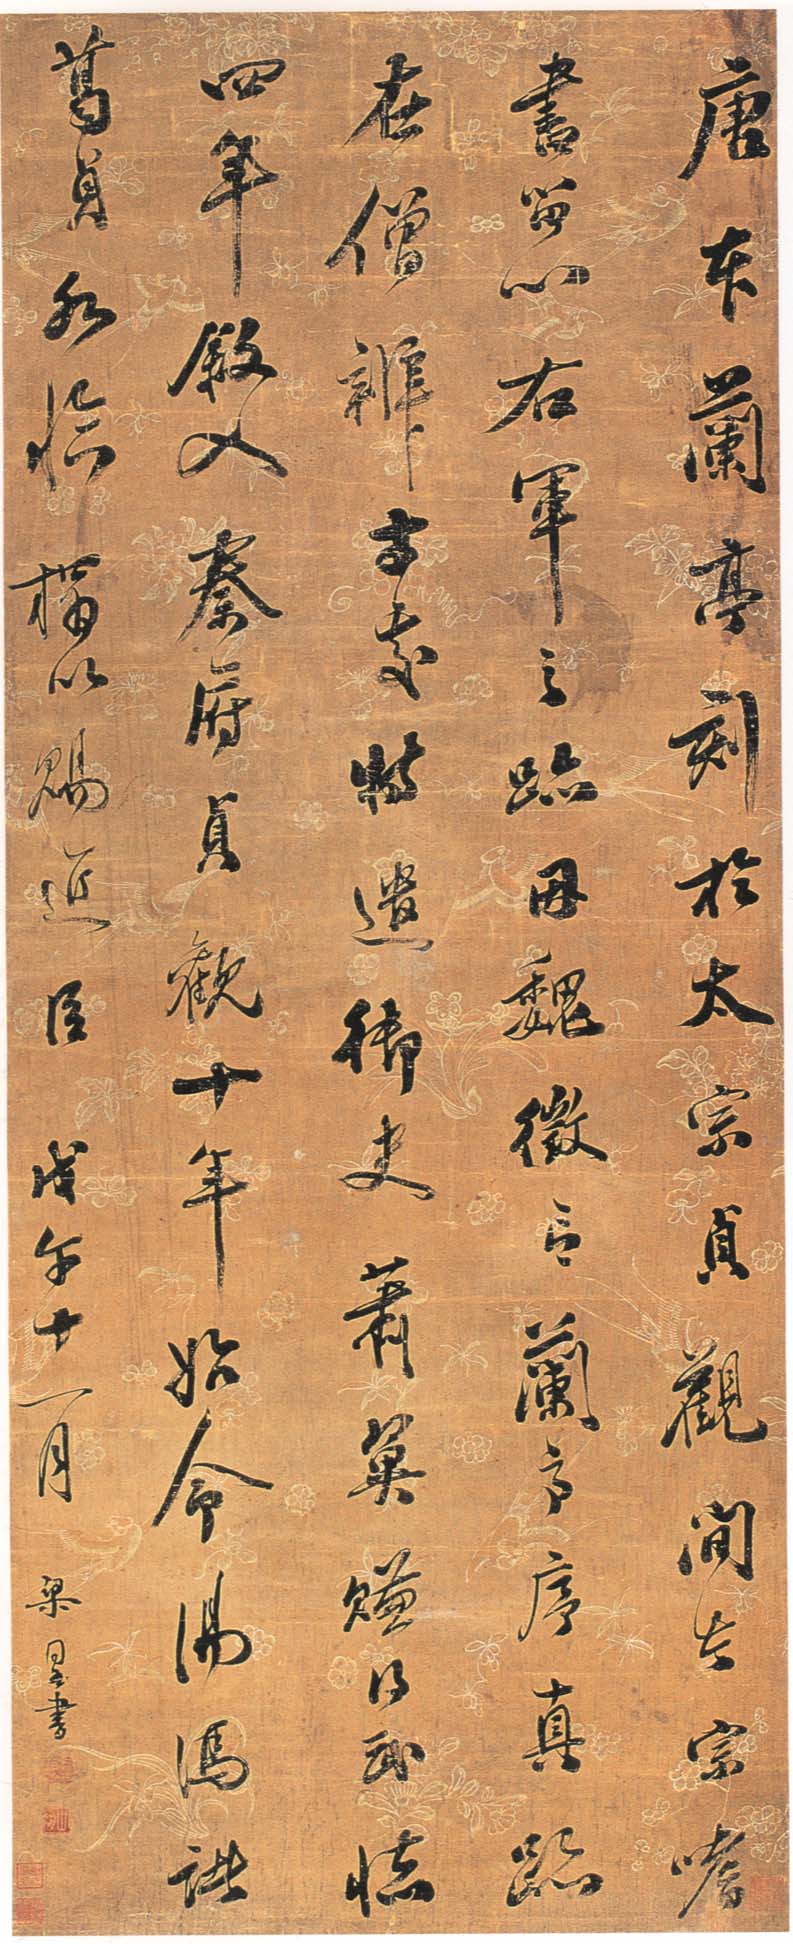 唐本蘭亭刻於太宗貞觀間太宗嗜
書留心右軍之跡因魏徵言蘭亭序真跡
在僧辨才處特遣御史蕭翼賺得武德
四年入秦府貞觀十年始令湯馮諸
葛貞臨搨以賜近臣 戊午十一月 梁書